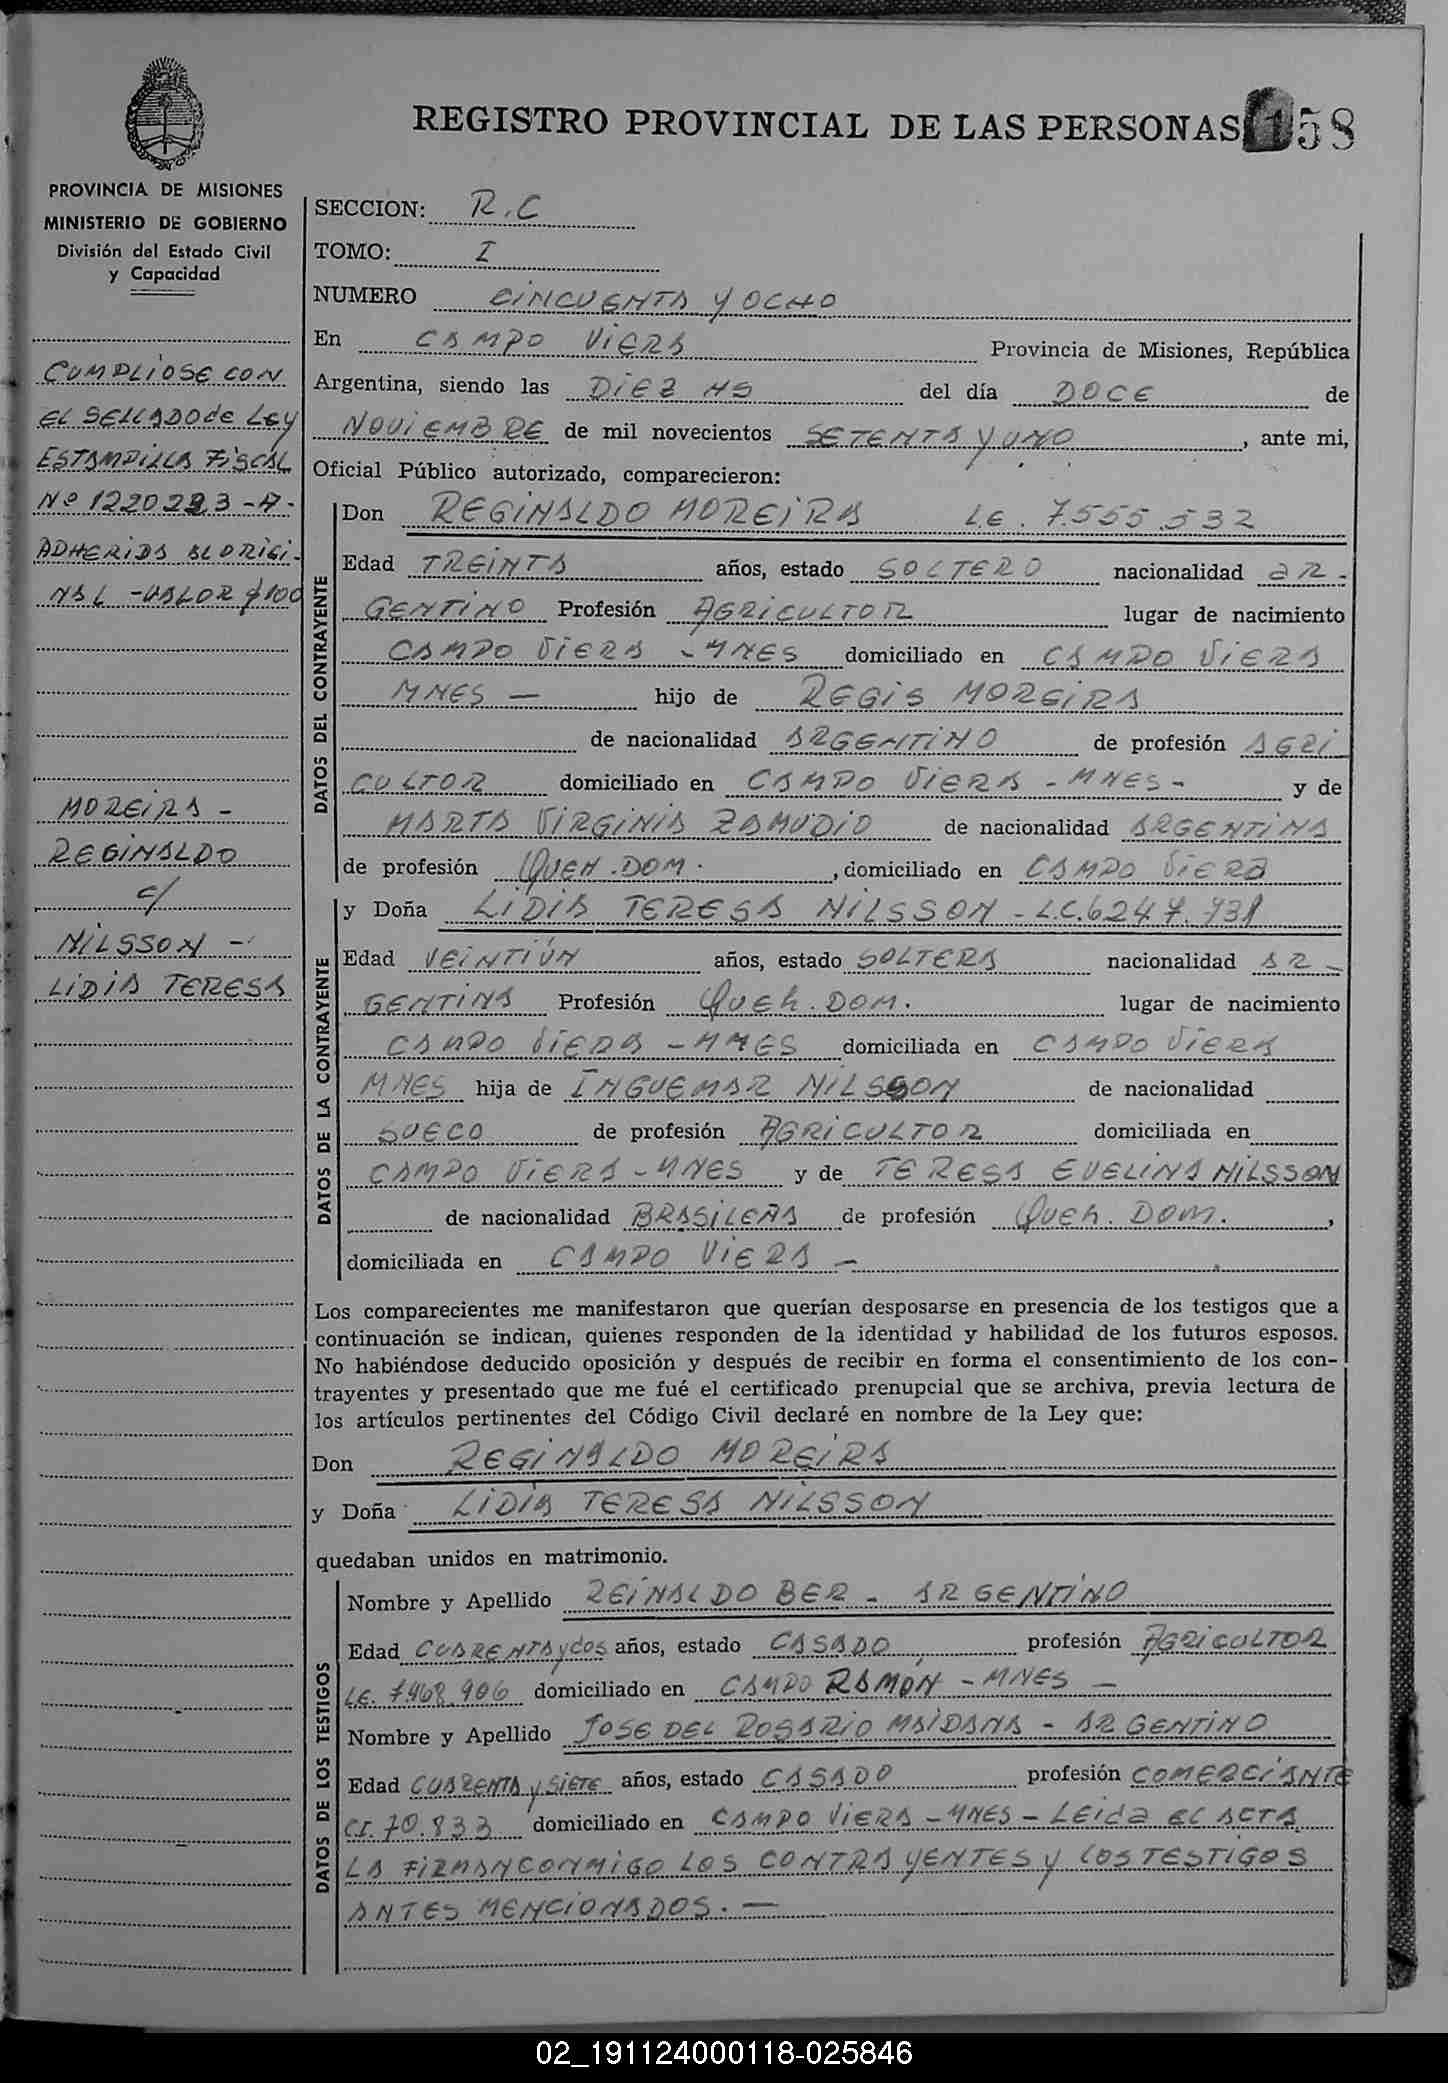 REGISTRO PROVINCIAL DE LAS PERSONAS 158
PROVINCIA DE MISIONES
MINISTERIO DE GOBIERNO
División del Estado Civil
y Capacidad
CUMPLIOSE CON
EL SELLADO de LEY
ESTAMPILLA FISCAL
Nº 1220223-A-
ADHERIDA AL ORIGI-
NAL - VALOR $100
MOREIRA -
REGINALDO
c/
NILSSON -
LIDIA TERESA
SECCION: R.C
TOMO: I
NUMERO CINCUENTA Y OCHO
En CAMPO VIERA Provincia de Misiones, República
Argentina, siendo las DIEZ HS del día DOCE de
NOVIEMBRE de mil novecientos SETENTA Y UNO, ante mi,
Oficial Público autorizado, comparecieron:
DATOS DEL CONTRAYENTE
Don REGINALDO MOREIRA L.E. 7.555.532
Edad TREINTA años, estado SOLTERO nacionalidad AR-
GENTINO Profesión AGRICULTOR lugar de nacimiento
CAMPO VIERA - MNES domiciliado en CAMPO VIERA
MNES — hijo de REGIS MOREIRA
de nacionalidad ARGENTINO de profesión AGRI
CULTOR domiciliado en CAMPO VIERA - MNES - y de
MARTA VIRGINIA ZAMUDIO de nacionalidad ARGENTINA
de profesión QUEH. DOM. , domiciliado en CAMPO VIERA
DATOS DE LA CONTRAYENTE
y Doña LIDIA TERESA NILSSON - L.C. 6247.931
Edad VEINTIÚN años, estado SOLTERA nacionalidad AR-
GENTINA Profesión QUEH. DOM. lugar de nacimiento
CAMPO VIERA - MNES domiciliada en CAMPO VIERA
MNES hija de INGUEMAR NILSSON de nacionalidad
SUECO de profesión AGRICULTOR domiciliada en
CAMPO VIERA - MNES y de TERESA EVELINA NILSSON
de nacionalidad BRASILEÑA de profesión QUEH. DOM. ,
domiciliada en CAMPO VIERA —
Los comparecientes me manifestaron que querían desposarse en presencia de los testigos que a
continuación se indican, quienes responden de la identidad y habilidad de los futuros esposos.
No habiéndose deducido oposición y después de recibir en forma el consentimiento de los con-
trayentes y presentado que me fué el certificado prenupcial que se archiva, previa lectura de
los artículos pertinentes del Código Civil declaré en nombre de la Ley que:
Don REGINALDO MOREIRA
y Doña LIDIA TERESA NILSSON
quedaban unidos en matrimonio.
DATOS DE LOS TESTIGOS
Nombre y Apellido REINALDO BER - ARGENTINO
Edad CUARENTA y dos años, estado CASADO, profesión AGRICULTOR
LE. 7468.906 domiciliado en CAMPO RAMÓN - MNES —
Nombre y Apellido JOSE DEL ROSARIO MAIDANA - ARGENTINO
Edad CUARENTA y SIETE años, estado CASADO profesión COMERCIANTE
CI. 70.833 domiciliado en CAMPO VIERA - MNES - LEIDA EL ACTA
LA FIRMAN CONMIGO LOS CONTRAYENTES Y LOS TESTIGOS
ANTES MENCIONADOS. —
02_191124000118-025846